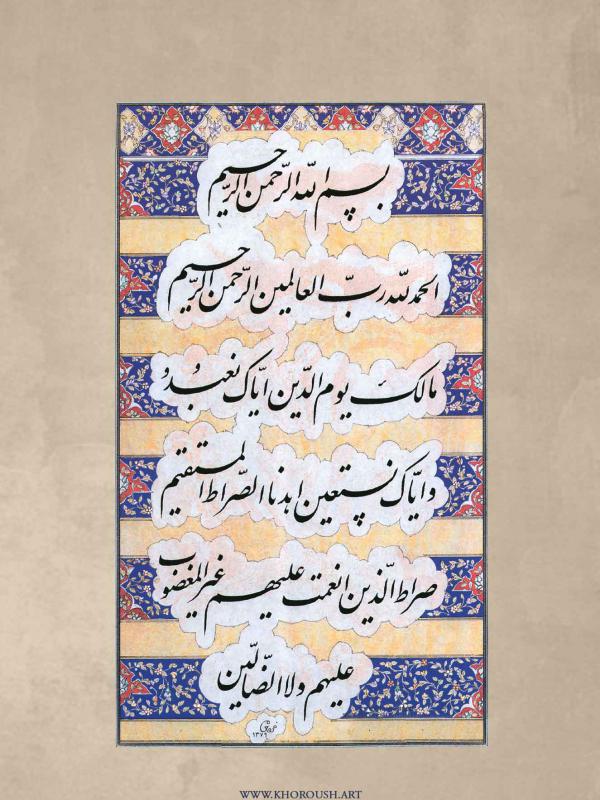 بسم الله الرّحمن الرّحیم
الحمدلله ربّ العالمین الرّحمن الرّحیم
مالک یوم الدّین ایّاک نعبدُ
وایّاک نستعین اهدنا الصّراط المستقیم
صراط الّذین انعمت علیهم غیر المغضوب
علیهم ولا الضّالّین
۱۳۷۹
WWW.KHOROUSH.ART